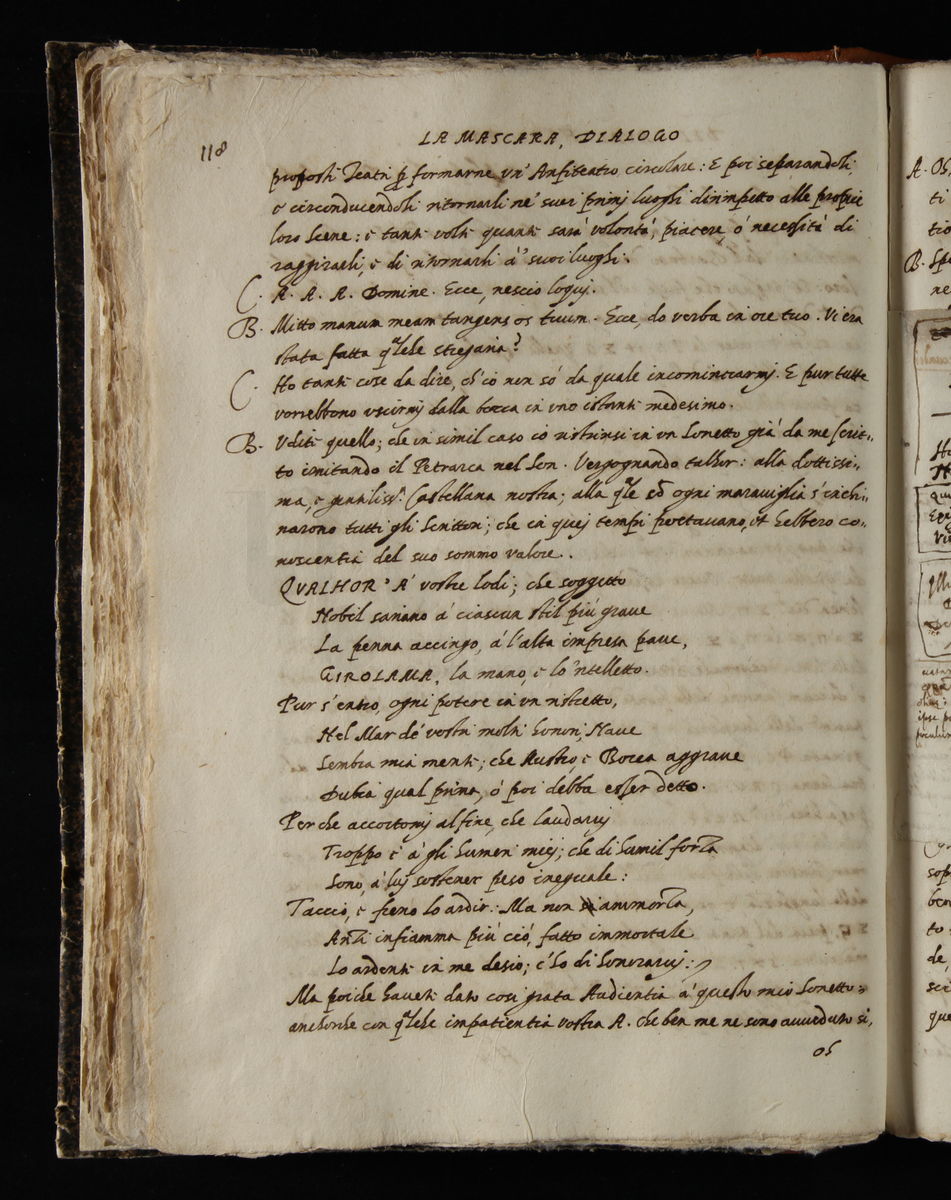 118
LA MASCARA, DIALOGO
proposti Teatri p formarne un' Anfiteatro circolare: E poi separandoli,
e circonducendoli ritornarli ne' suoi primj luoghi dirimpetto alle proprie
loro Scene: e tante volte quante sarà volontà, piacere, ò necessità di
raggirarli, e di ritornarli à suoi luoghi.
C. A. A. A. Domine. Ecce, nescio loquj.
B. Mitto manum meam tangens os tuum. Ecce, do verba in ore tuo. Vi era
stata fatta qlche stregaria?
C. Ho tante cose da dire, ch'io non sò da quale incominciarmj. E pur tutte
vorrebbono uscirmj dalla bocca in uno istante medesimo.
B. Udite quello; che in simil caso io ristrinsi in un Sonetto già da me scrit-
to imitando il Petrarca nel Son. Vergognando talhor: alla dottissi-
ma, e Castellana nostra; alla qle ed ogni maraviglia s'inchi-
narono tutti gli Scrittori; che in quej tempi poetavano, et hebbero co-
noscentia del suo sommo valore.
QVALHOR' A' vostre lodi; che soggetto
Nobil sariano à ciascun stil più grave
La penna accingo, à l'alta impresa pave,
GIROLAMA, la mano, e lo 'ntelletto.
Pur s'entro, ogni potere in un ristretto,
Nel Mar de' vostri molti honori, Nave
Sembra mia mente; che Austro, e Borea aggrave
Dubia qual prima, ò poi debba esser detto.
Perche accortomj al fine, che laudarvj
Troppo è à gli humeri miej; che di humil forza
Sono, à luj sostener peso ineguale:
Taccio, e freno lo ardir: Ma non ammorza,
Anzi infiamma più ciò, fatto immortale
Lo ardente in me desio; c'ho di honorarvj.
Ma poiche havete dato così grata Audientia à questo mio Sonetto
anchorche con qlche impatientia vostra A. che ben me ne sono avveduto sì,
os